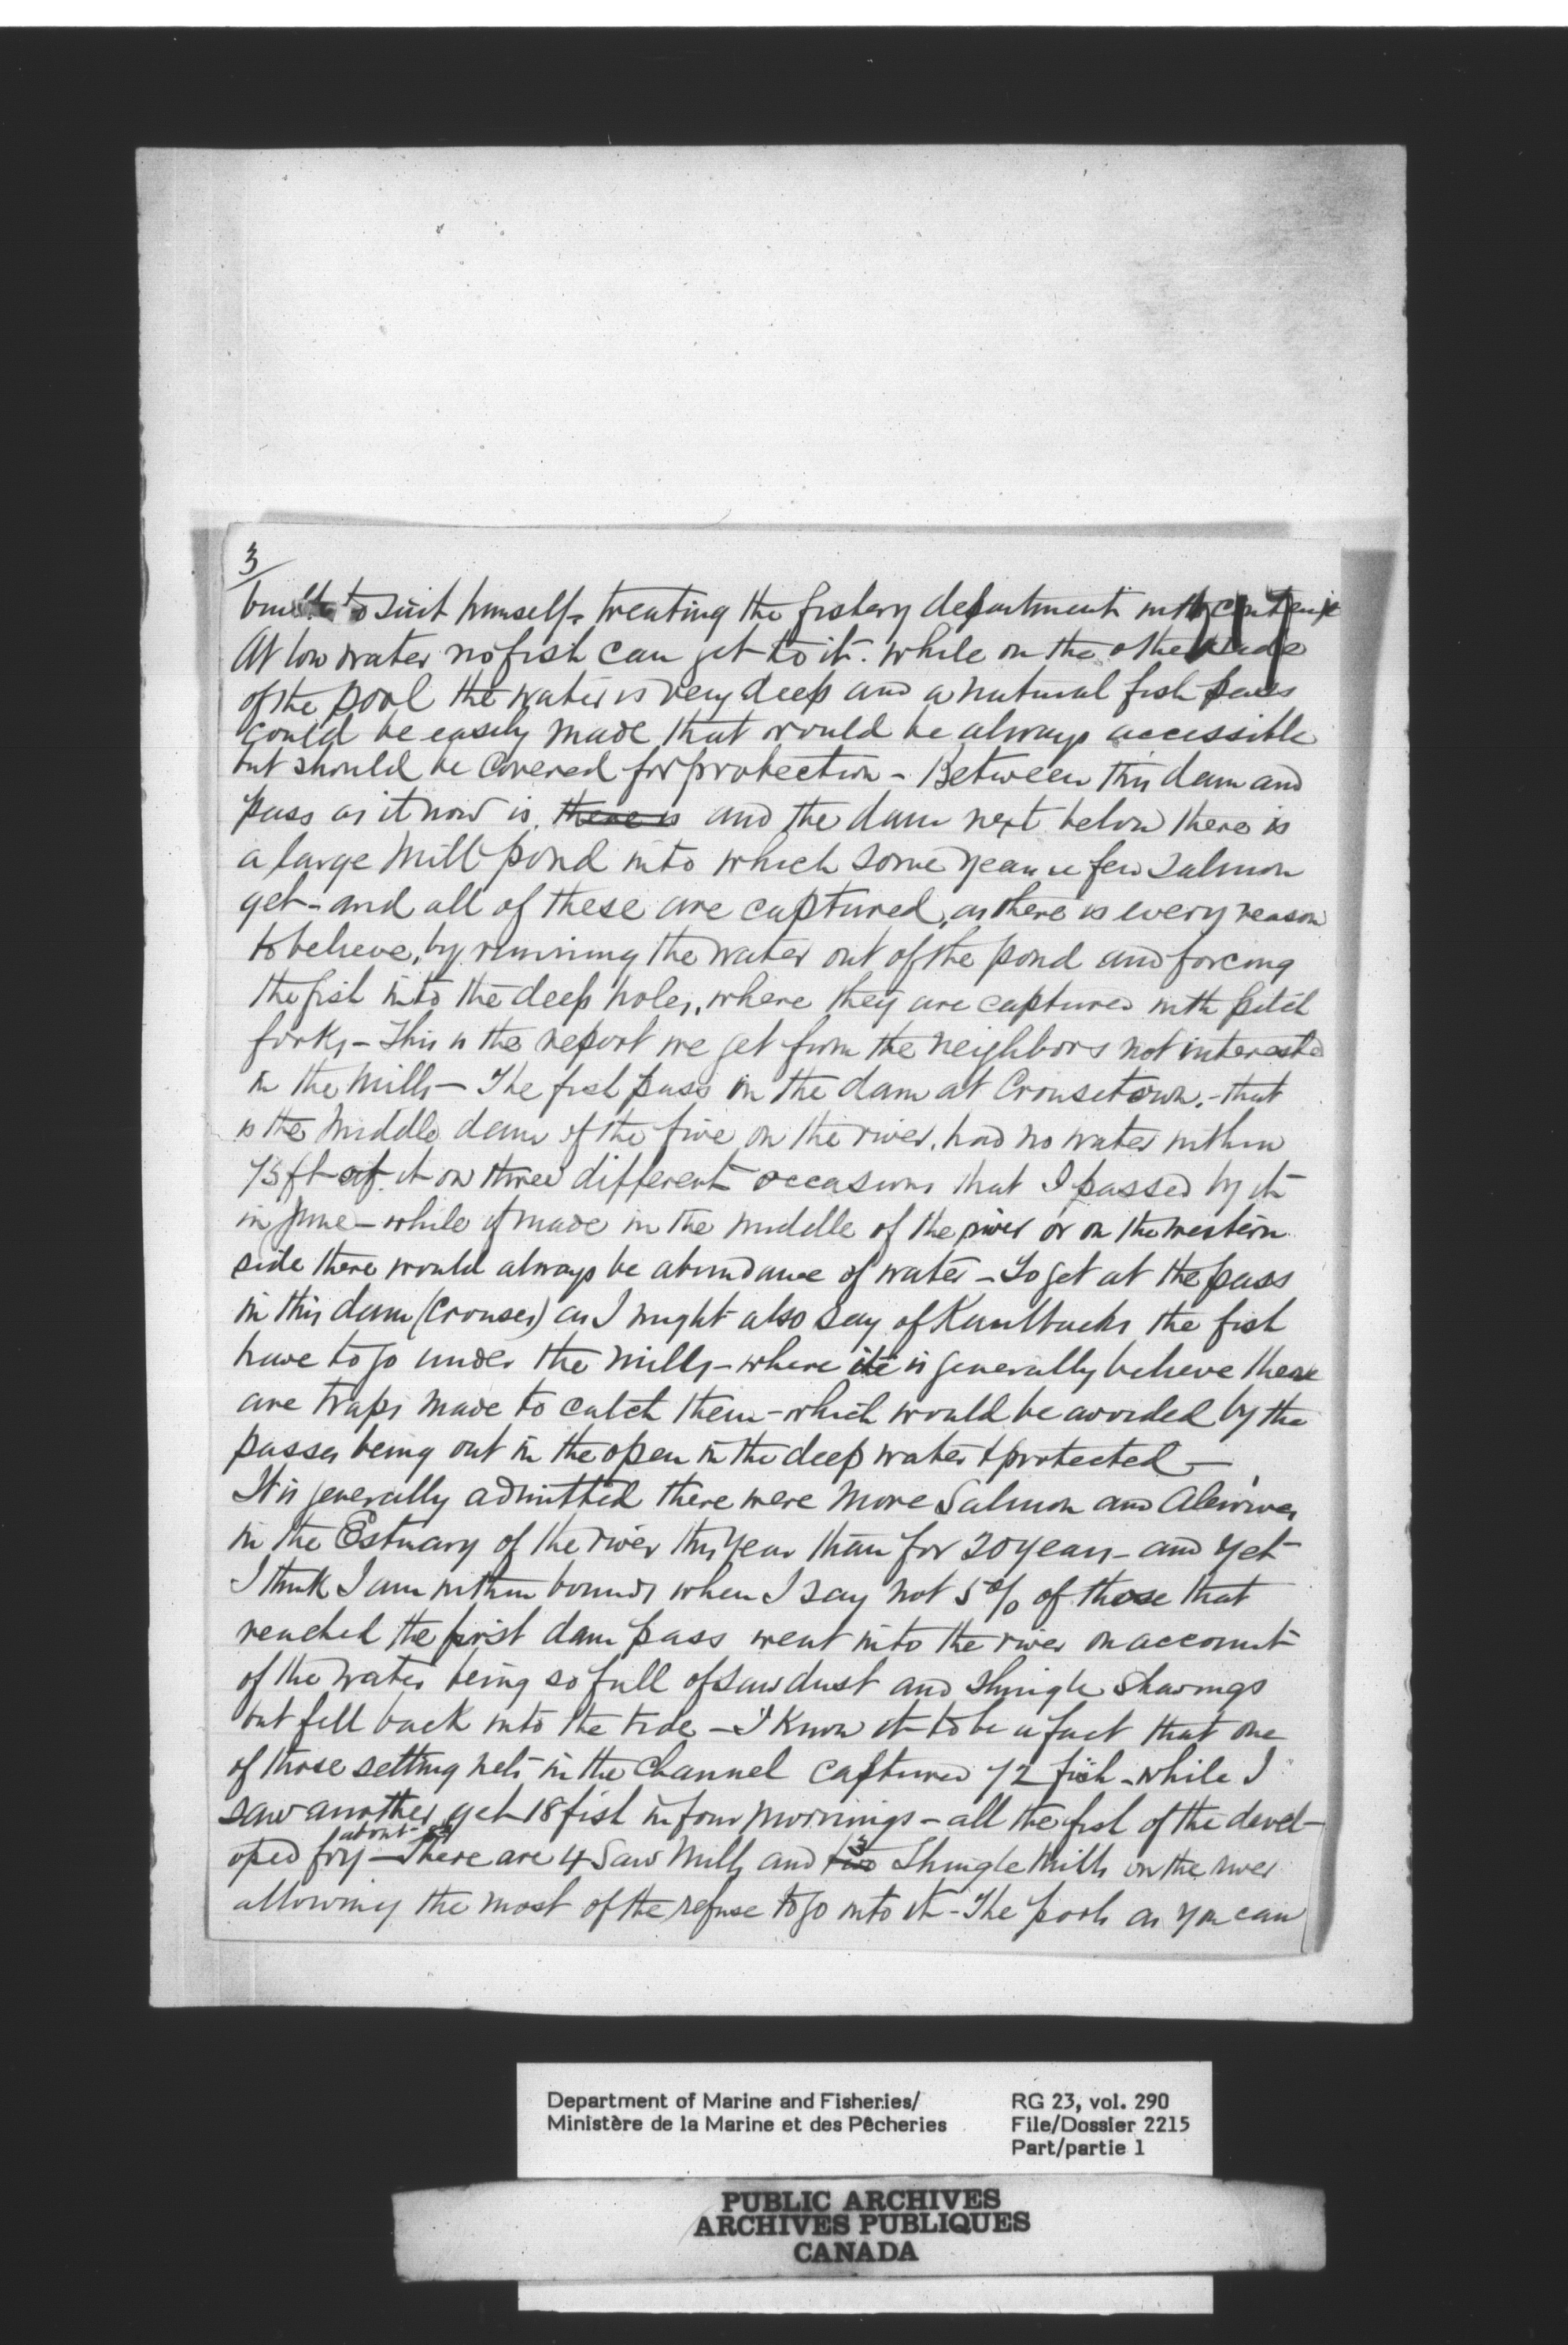 3
built to suit himself, treating the fishery department with contempt
At low water no fish can get to it. while on the other side
of the pool the water is very deep and a natural fish pass
could be easily made that would be always accessible
but should be covered for protection - Between this dam and
pass as it now is, there is and the dam next below there is
a large mill pond into which some years a few salmon
get - and all of these are captured, as there is every reason
to believe, by running the water out of the pond and forcing
the fish into the deep holes, where they are captured with pitch
forks - This is the report we get from the neighbors not interested
in the mills - The fish pass in the dam at Crousetown, - that
is the middle dam of the five on the river, had no water within
75 ft of it on three different occasions that I passed by it
in June - while if made in the middle of the river or on the western
side there would always be abundance of water - To get at the pass
in this dam (Crouses) as I might also say of Kaulbacks the fish
have to go under the mills - where it is generally believe there
are traps made to catch them - which would be avoided by the
passes being out in the open in the deep water & protected -
It is generally admitted there were more Salmon and Alewives
in the Estuary of the river this year than for 20 years - and yet
I think I am within bounds when I say not 5% of those that
reached the first dam pass went into the river on account
of the water being so full of sawdust and shingle shavings
but fell back into the tide - I know it to be a fact that one
of those setting nets in the Channel captured 72 fish - while I
saw another get 18 fish in four mornings - all the fish of the devel-
about
oped fry - There are 4 Saw Mills and two 3 Shingle Mills on the river
allowing the most of the refuse to go into it - The pools as you can
Department of Marine and Fisheries/
Ministère de la Marine et des Pêcheries
RG 23, vol. 290
File/Dossier 2215
Part/partie 1
PUBLIC ARCHIVES
ARCHIVES PUBLIQUES
CANADA